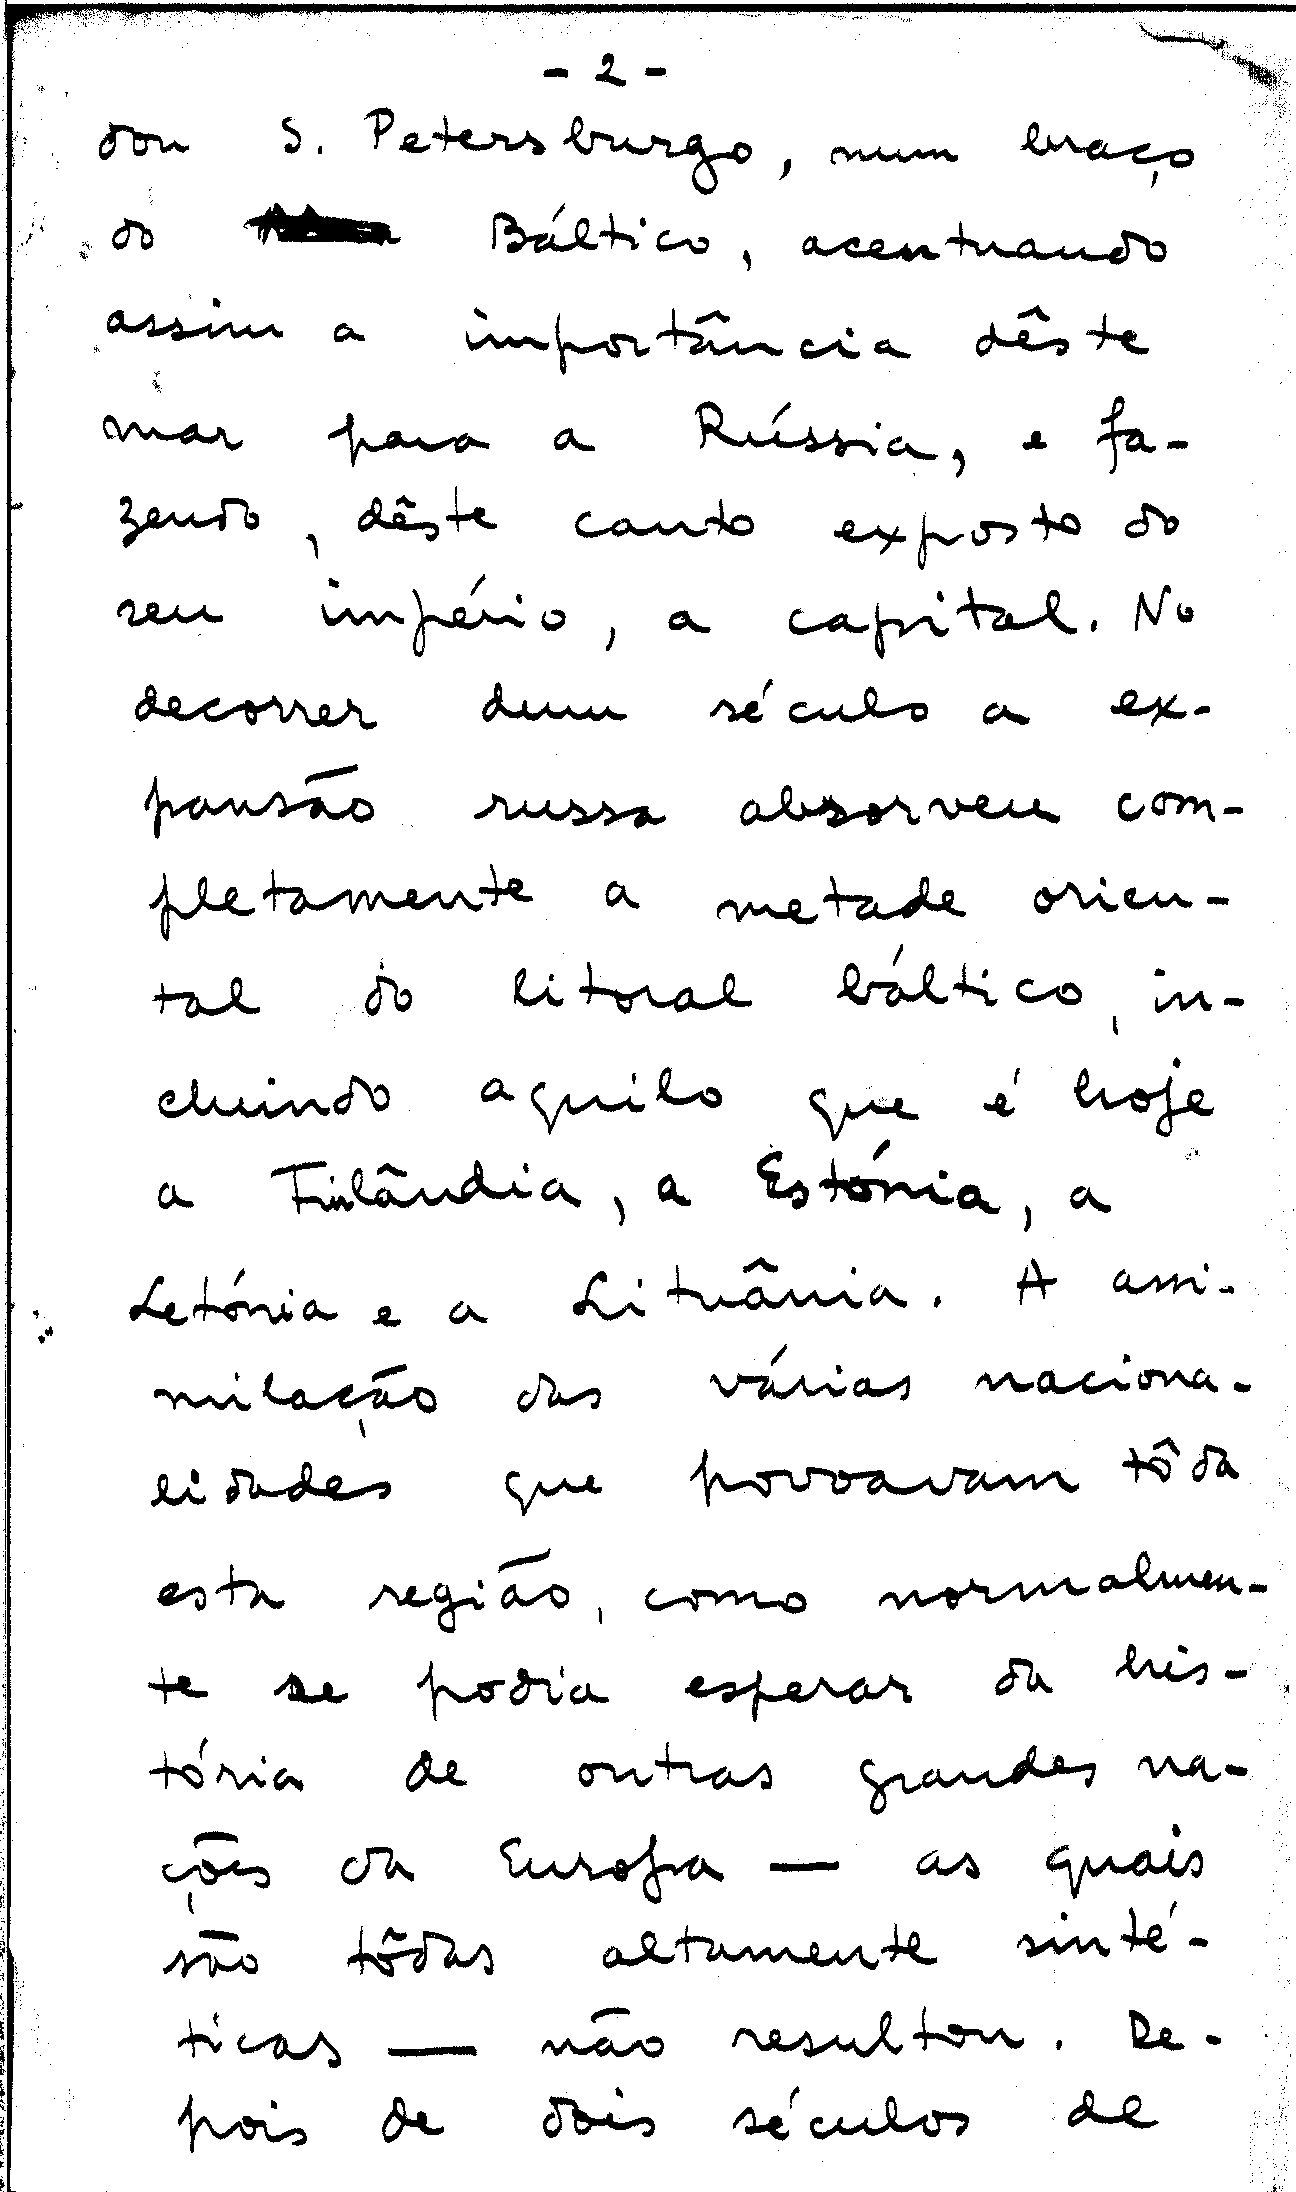 - 2 -
dou S. Petersburgo, num braço
do Báltico, acentuando
assim a importância dêste
mar para a Rússia, e fa-
zendo, dêste canto exposto do
seu império, a capital. No
decorrer dum século a ex-
pansão russa absorveu com-
pletamente a metade orien-
tal do litoral báltico, in-
cluindo aquilo que é hoje
a Finlândia, a Estónia, a
Letónia e a Lituânia. A assi-
milação das várias naciona-
lidades que povoavam tôda
esta região, como normalmen-
te se podia esperar da his-
tória de outras grandes na-
ções da Europa — as quais
são tôdas altamente sinté-
ticas — não resultou. De-
pois de dois séculos de